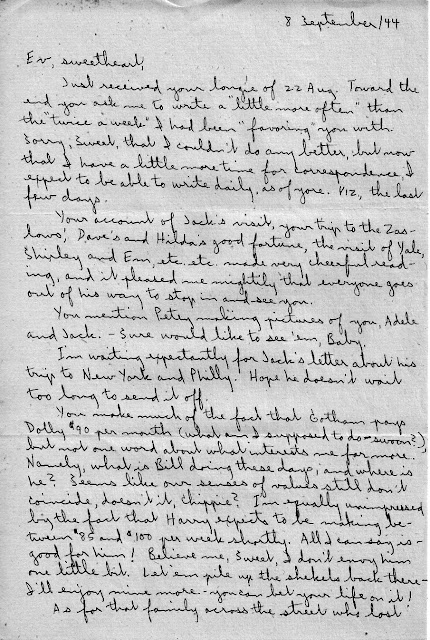 8 September/44
Ev, sweetheart,
Just received your longie of 22 Aug. Toward the
end you ask me to write a "little more often" than
the "twice a week" I had been "favoring" you with.
Sorry, Sweet, that I couldn't do any better, but now
that I have a little more time for correspondence, I
expect to be able to write daily, as of yore. Viz, the last
few days.
Your account of Jack's visit, your trip to the Zas-
lows', Dave's and Hilda's good fortune, the visit of Yale,
Shirley and Em, etc. etc. made very cheerful read-
ing, and it pleased me mightily that everyone goes
out of his way to stop in and see you.
You mention Petey making pictures of you, Adele
and Jack. - Sure would like to see 'em, Baby.
I'm waiting expectantly for Jack's letter about his
trip to New York and Philly. Hope he doesn't wait
too long to send it off.
You make much of the fact that Gotham pays
Dotty $90 per month (what am I supposed to do - swoon?),
but not one word about what interests me far more.
Namely, what is Bill doing these days, and where is
he? Seems like our senses of values still don't
coincide, doesn't it, Chippie? I'm equally unimpressed
by the fact that Harry expects to be making be-
tween $85 and $100 per week shortly. All I can say is -
good for him! Believe me, Sweet, I don't envy him
one little bit. Let 'em pile up the shekels back there -
I'll enjoy mine more - you can bet your life on it!
As for that family across the street who lost